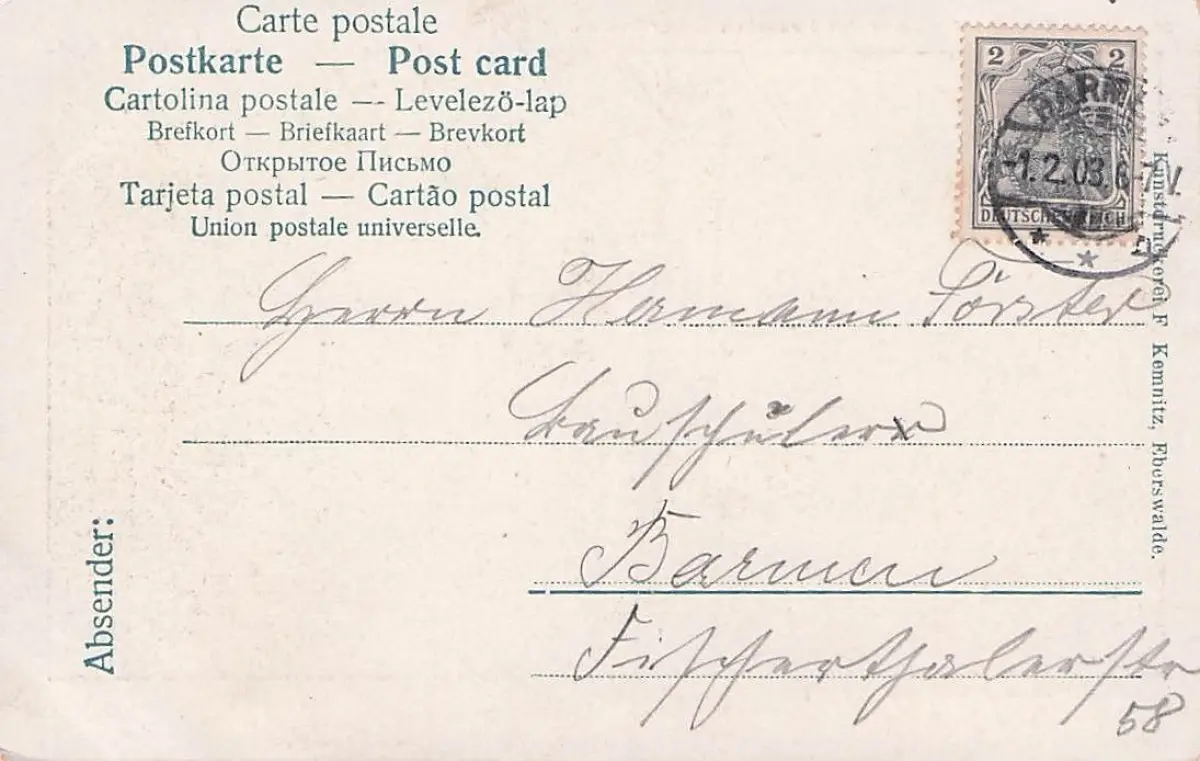 Carte postale
Postkarte — Post card
Cartolina postale — Levelező-lap
Brefkort — Briefkaart — Brevkort
Открытое Письмо
Tarjeta postal — Cartão postal
Union postale universelle.
2 2
BARM
-1.2.03.6-7N.
DEUTSCHES REICH
Herrn Hermann Förster
Bauschüler
Barmen
Fischerthalerstr
58
Absender:
Kunstdruckerei F Kemnitz, Eberswalde.